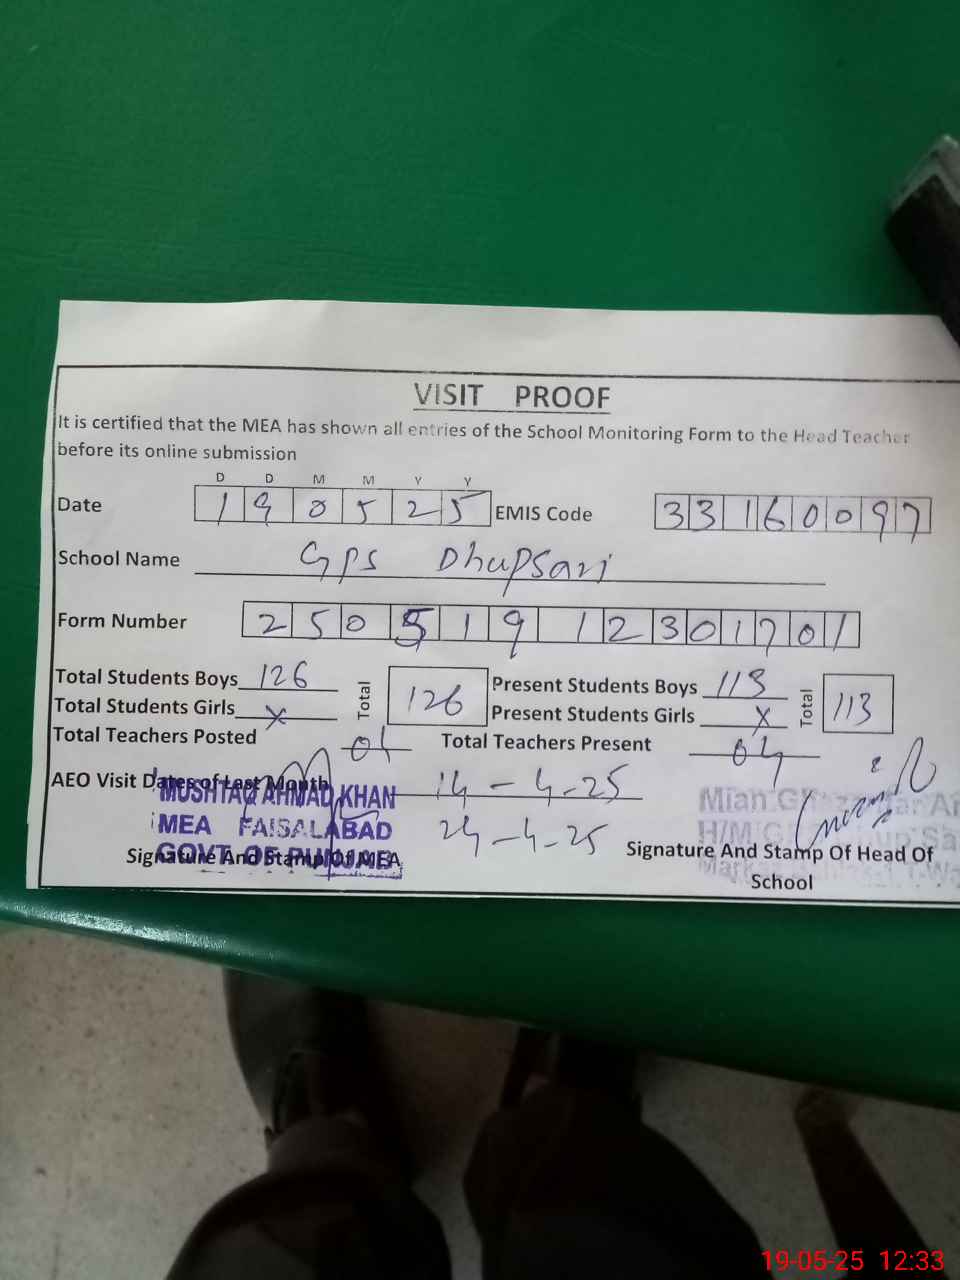 VISIT PROOF
It is certified that the MEA has shown all entries of the School Monitoring Form to the Head Teacher
before its online submission
D D M M Y Y
Date 190525 EMIS Code 33160097
School Name GPS Dhupsari
Form Number 25051912301701
Total Students Boys 126 Total 126 Present Students Boys 113 Total 113
Total Students Girls X Present Students Girls X
Total Teachers Posted 04 Total Teachers Present 04
AEO Visit Dates of Last Month 14-4-25
24-4-25
MUSHTAQ AHMAD KHAN
MEA FAISALABAD
GOVT. OF PUNJAB
Signature And Stamp Of MEA
Mian
H/M
Signature And Stamp Of Head Of
School
19-05-25 12:33